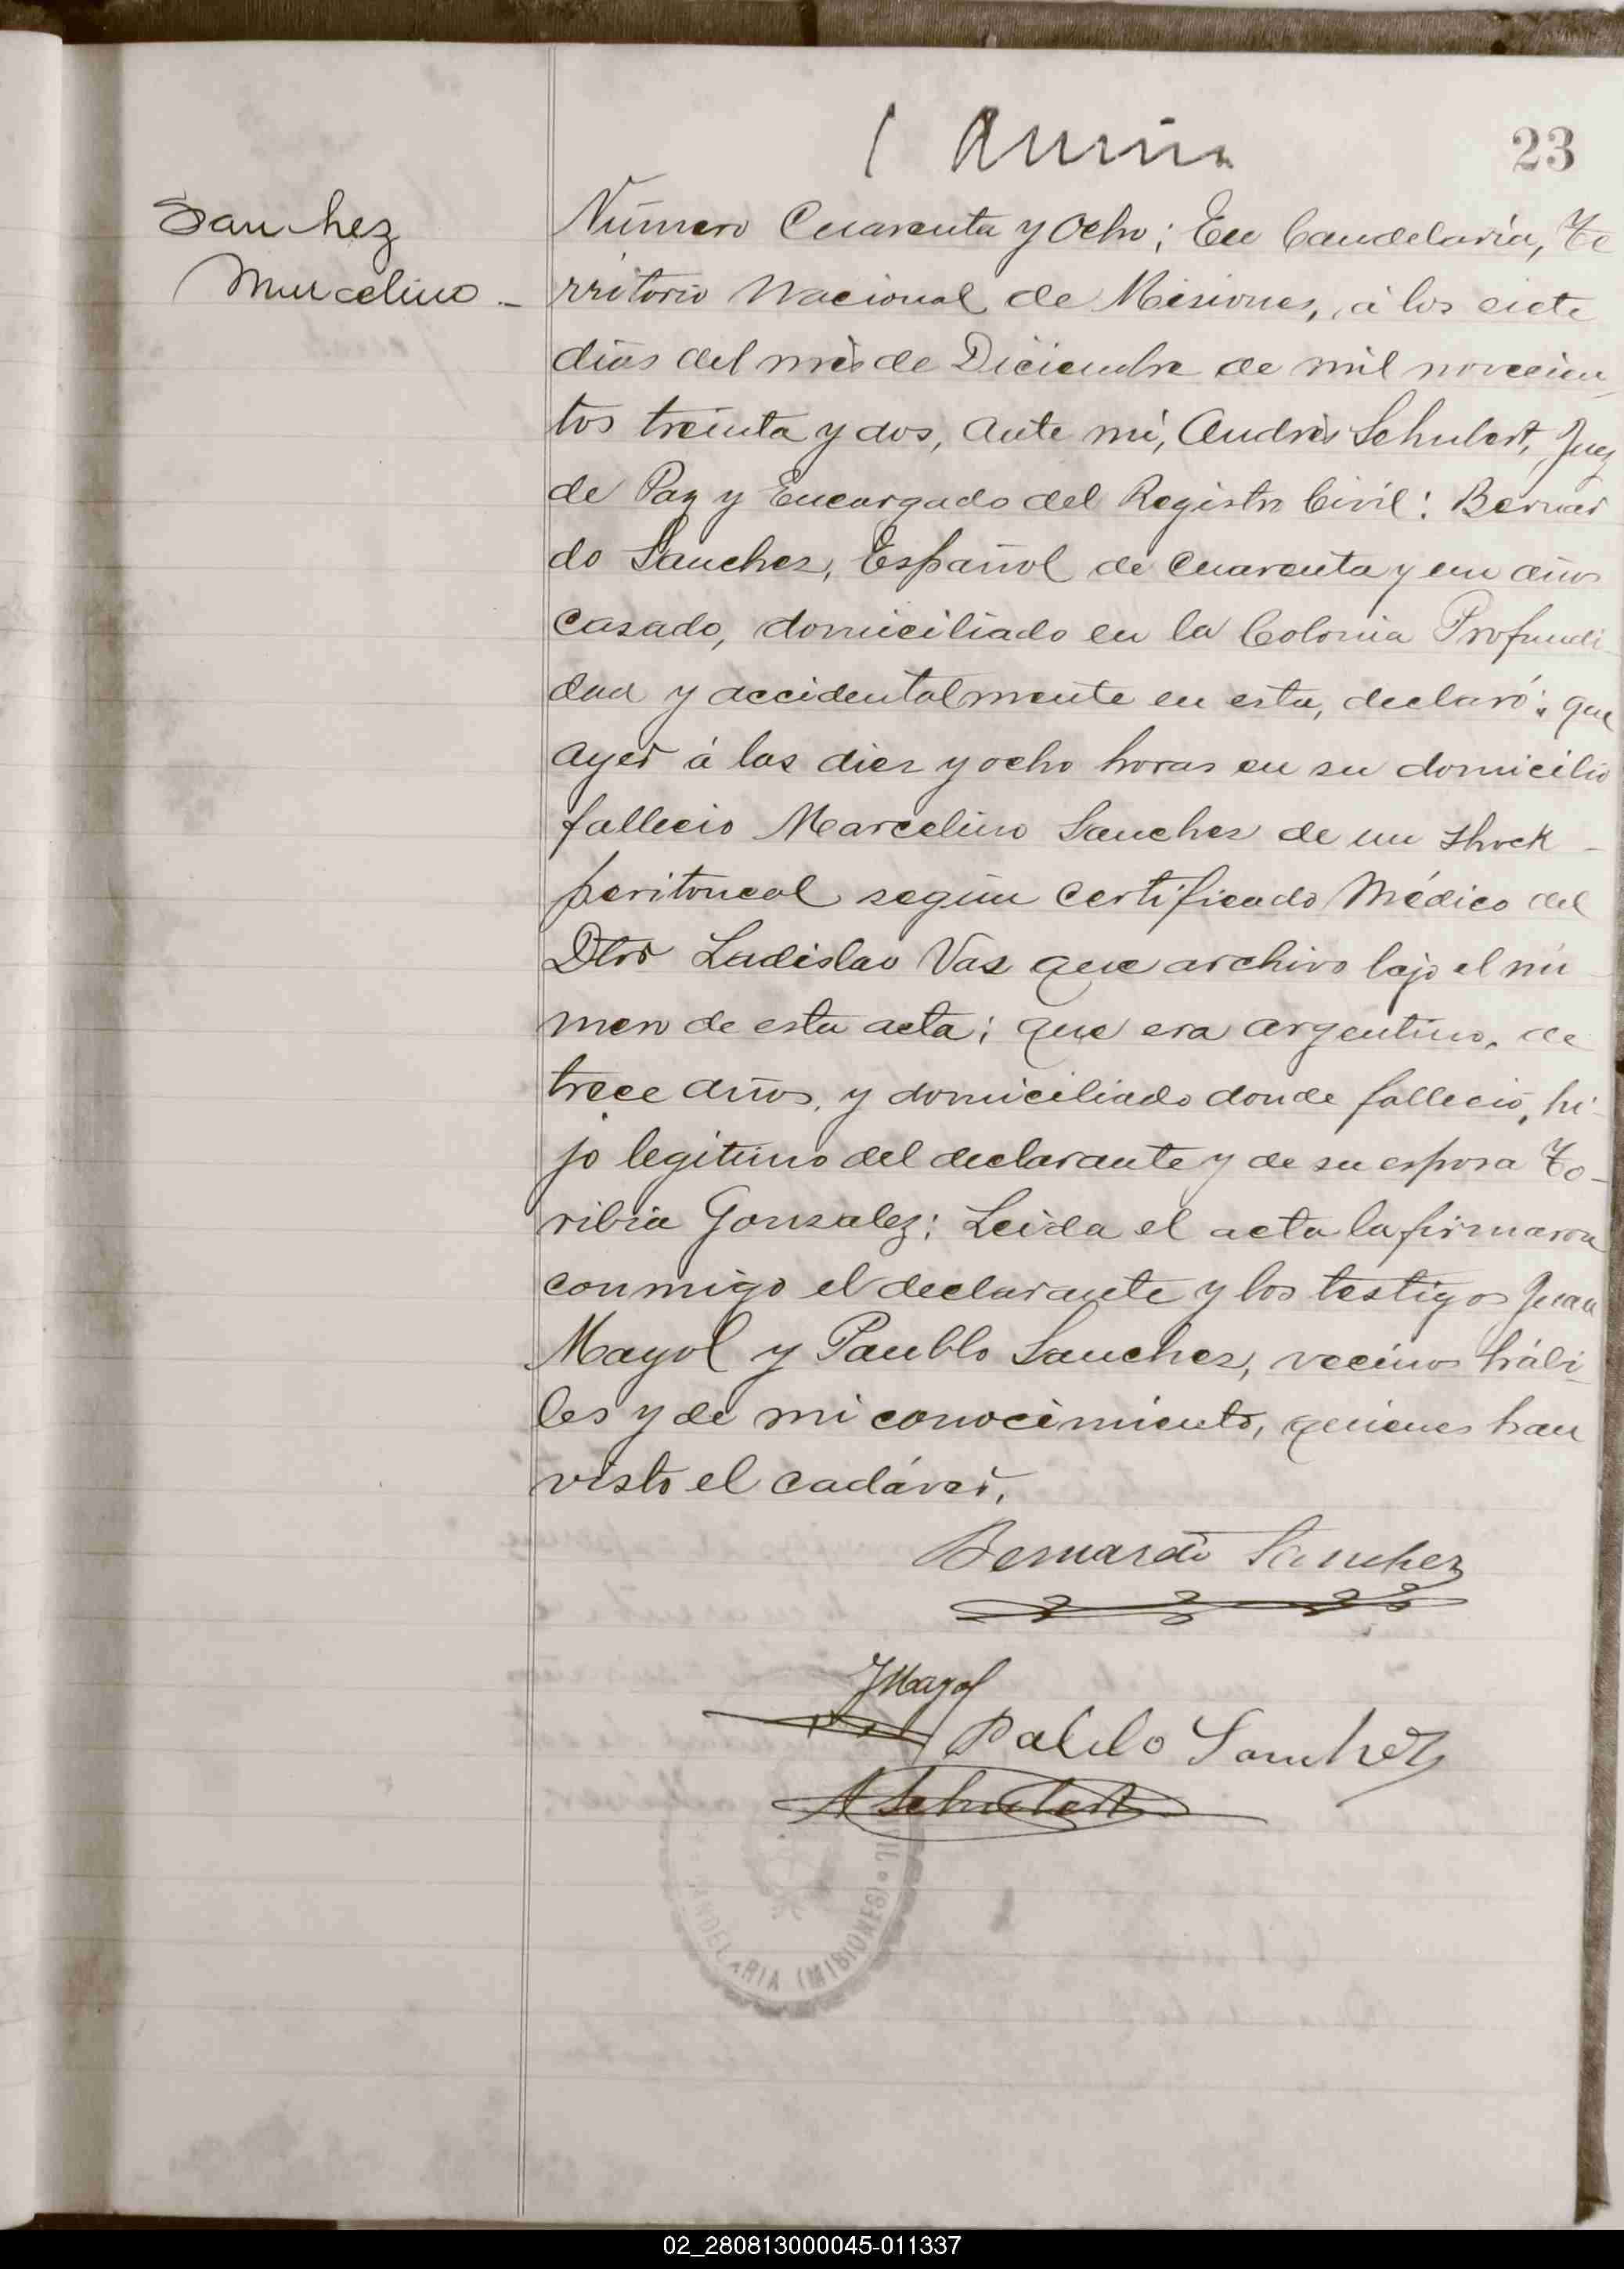 23
Sanchez
Marcelino -
Número Cuarenta y Ocho; En Candelaria, Te
rritorio Nacional de Misiones, á los siete
días del més de Diciembre de mil novecien
tos treinta y dos, ante mí, Andrés Schubert, Juez
de Paz y Encargado del Registro Civil: Bernar
do Sanchez, Español de cuarenta y un años
casado, domiciliado en la Colonia Profundi-
dad y accidentalmente en esta, declaró: que
ayer á las diez y ocho horas en su domicilio
fallecio Marcelino Sanchez de un shock -
peritoneal según certificado Médico del
Dtor Ladislao Vaz que archivo bajo el nú
mero de esta acta; que era argentino, de
trece años, y domiciliado donde falleció, hi-
jo legitimo del declarante y de su esposa To-
ribia Gonzalez: Leida el acta la firmaron
conmigo el declarante y los testigos Juan
Mayol y Paublo Sanchez, vecinos hábi-
les y de mi conocimiento, quienes han
visto el cadáver.
Bernardo Sanchez
JMayol
Pablo Sanchez
A Schubert
CANDELARIA (MISIONES)
02_280813000045-011337